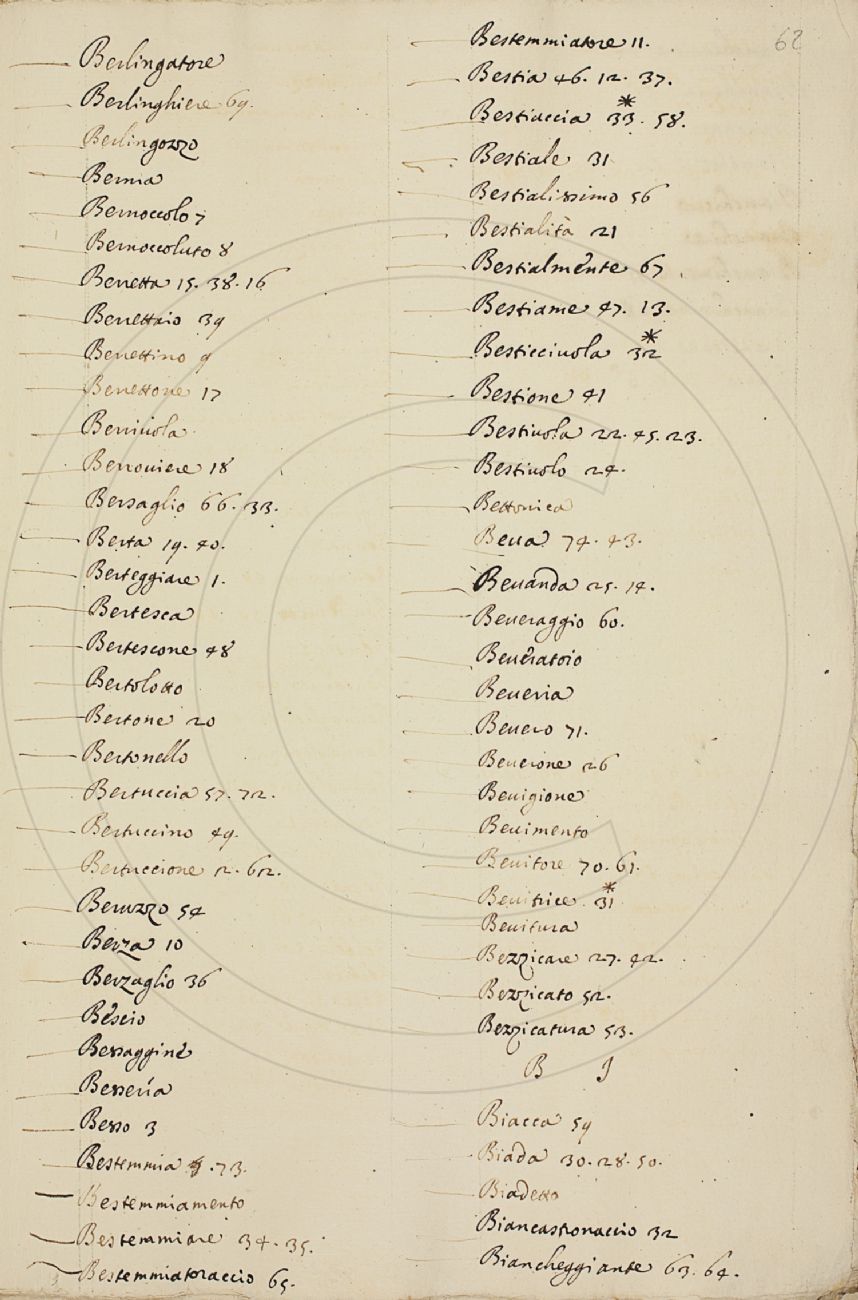 62
Berlingatore
Berlinghiere 69.
Berlingozzo
Bernia
Bernoccolo 7
Bernoccoluto 8
Berretta 15. 38. 16
Berrettaio 39
Berrettino 9
Berrettone 17
Berriuola
Berrouiere 18
Bersaglio 66. 33.
Berta 19. 40.
Berteggiare 1.
Bertesca
Bertescone 48
Bertolotto
Bertone 20
Bertonello
Bertuccia 57. 72.
Bertuccino 49.
Bertuccione 2. 62.
Beruzzo 54
Berza 10
Berzaglio 36
Bèscio
Bessaggine
Bessería
Besso 3
Bestemmia 5. 73.
Bestemmiamento
Bestemmiare 34. 35.
Bestemmiatoraccio 65.
Bestemmiatore 11.
Bestia 46. 12. 37.
Bestiuccia 33*. 58.
Bestiale 31
Bestialissimo 56
Bestialità 21
Bestialmente 67
Bestiame 47. 13.
Besticciuola 32*
Bestione 41
Bestiuola 22. 45. 23.
Bestiuolo 24.
Bettonica
Beua 74. 43.
Beuanda 25. 14.
Beueraggio 60.
Beueratoio
Beueria
Beuero 71.
Beuerone 26
Beuigione
Beuimento
Beuitore 70. 61.
Beuitrice 31*
Beuitura
Bezzicare 27. 42.
Bezzicato 52.
Bezzicatura 53.
B I
Biacca 59
Biada 30. 28. 50.
Biadetto
Biancastronaccio 32
Biancheggiante 63. 64.